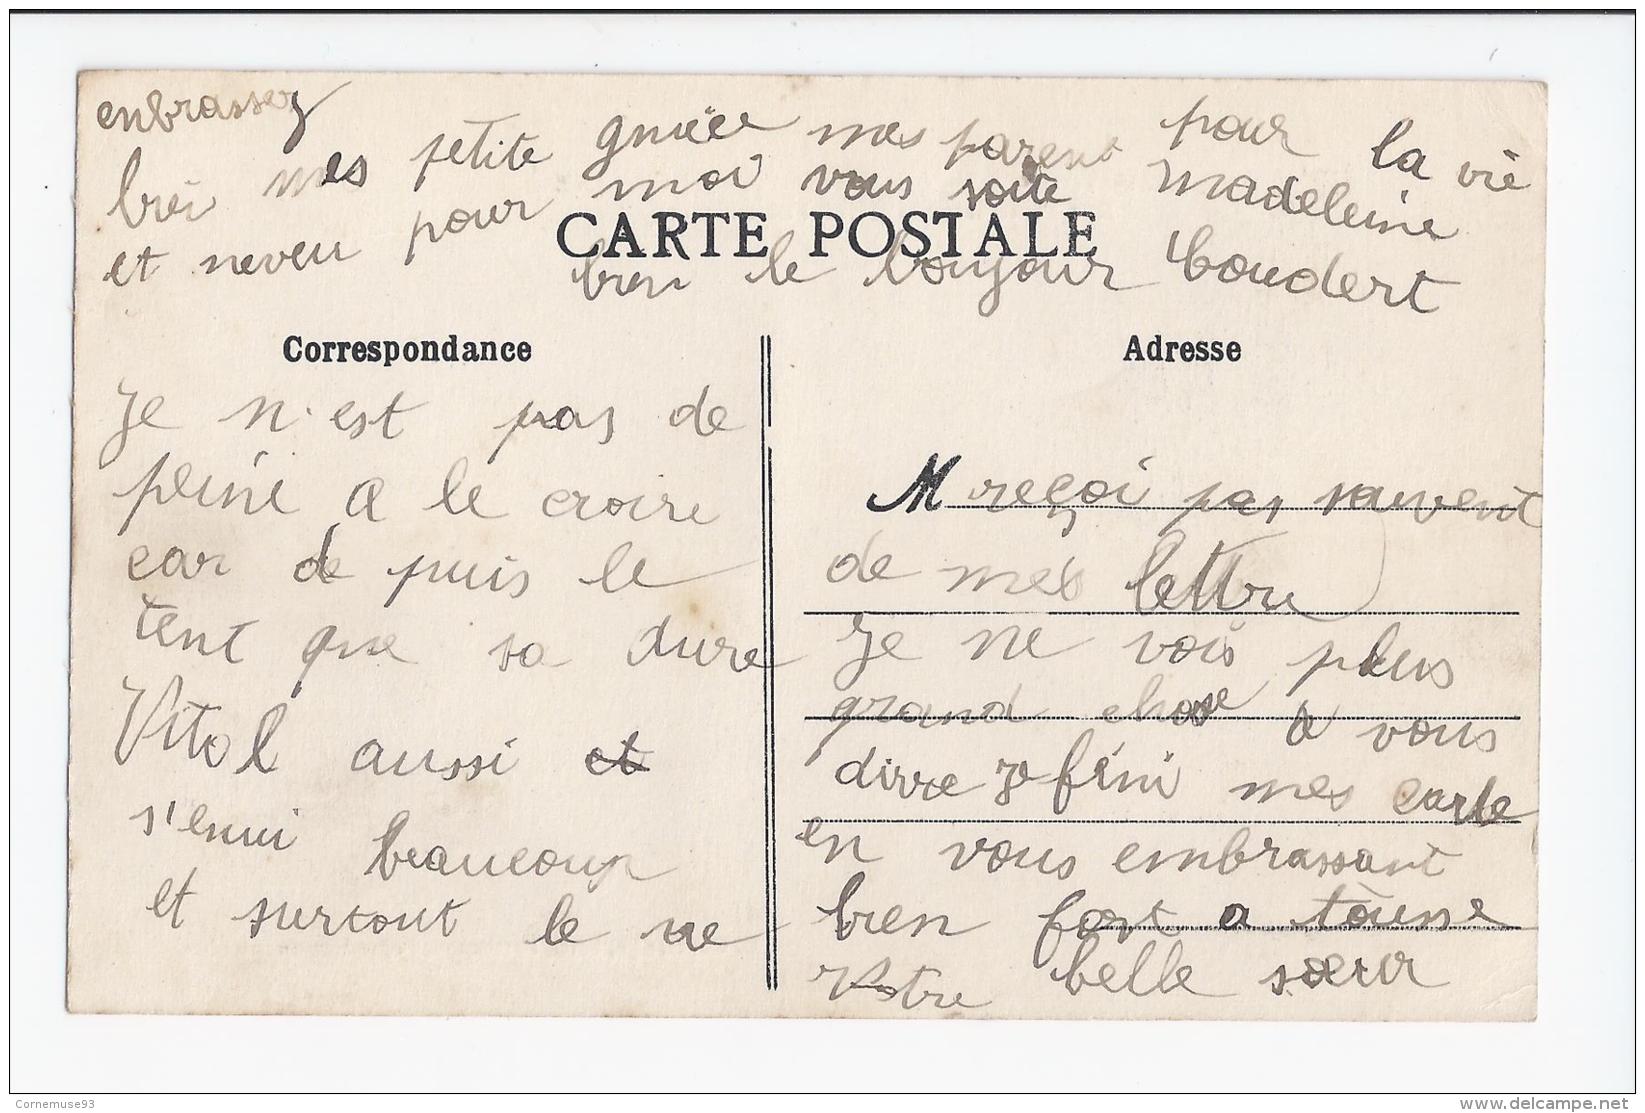 enbrassez
bien mes petite gnièce mes parent pour la vie
et neveu pour moi vous soite Madeleine
CARTE POSTALE
bien le boujour Coudert
Correspondance
Je n'est pas de
peine a le croire
car de puis le
tent que sa dure
Vital aussi et
s'enui beaucoup
et surtout le ne
Adresse
M reçoi pas souvent
de mes lettre
Je ne vois plus
grand chose a vous
dirre je fini mes carte
en vous embrassant
bien fort a touse
Votre belle sœur
Cornemuse93
delcampe.net